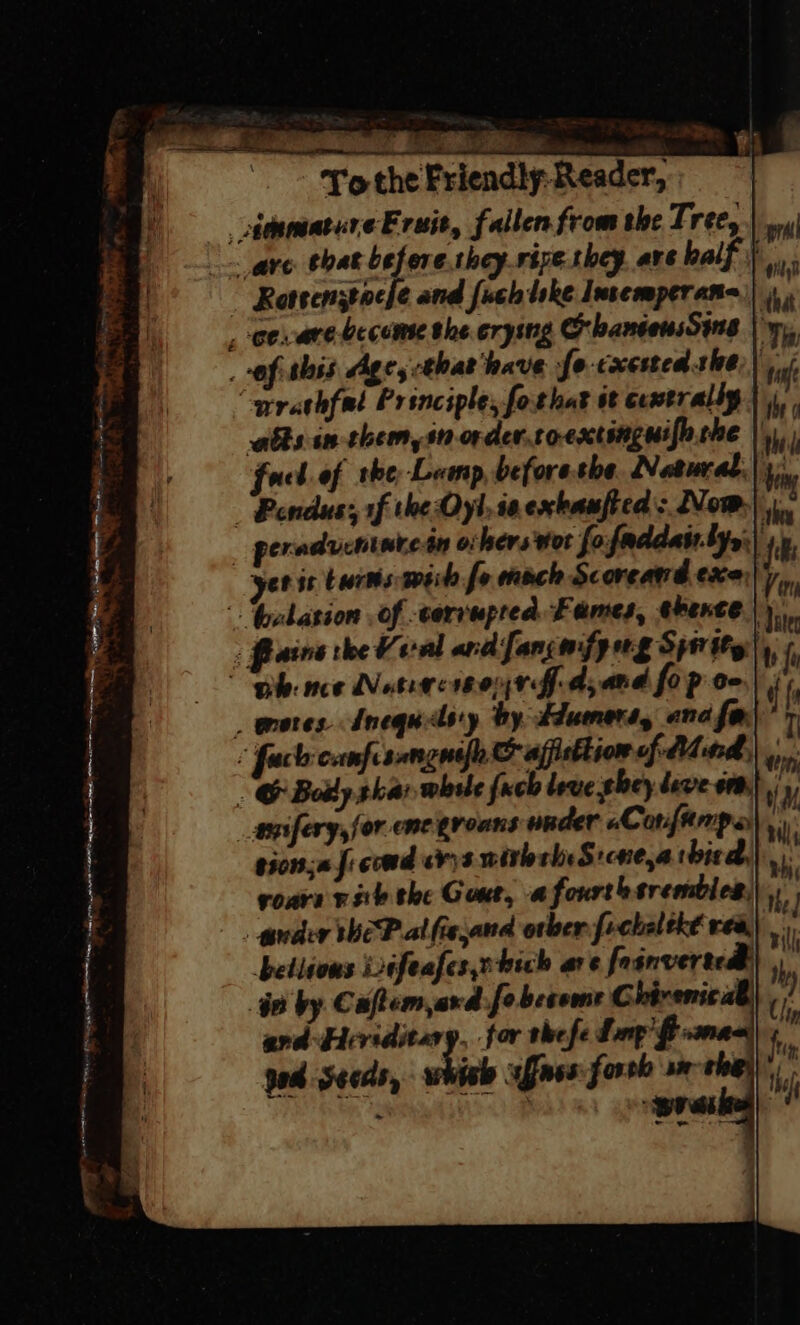 To the Friendly Reader,
immature Fruit, fallen from the Tree,
are that before they ripe they are half
Rotten; these and such like Intemperan-
ces are become the crying & hanious Sins
of this Age, that have so excited the
wrathful Principle, so that it centrally
acts in them, in order to extinguish the
fuel of the Lamp, before the Natural
Pendus; if the Oyl is exhausted: Now
peradventure in others not so suddainly,
yet it turns with so much Scoreand exa-
halation of corrupted Fumes, thence
stains the Vital and sanguifying Spirits,
whence Natures and so pro-
motes Inequality by Humers, and so
such & affliction of Mind
& Body, that while such love they live in
misery, for one groans under a Consump-
tion; a second crys with the Stone, a third
roars with the Gout, a fourth trembles
under the Palsie, and other such like re-
bellious Diseases, which are so inverted
in by Custom, and so become Chronical
and Hereditary, for these Imp
ged Seeds, which issues forth in the
wrathed